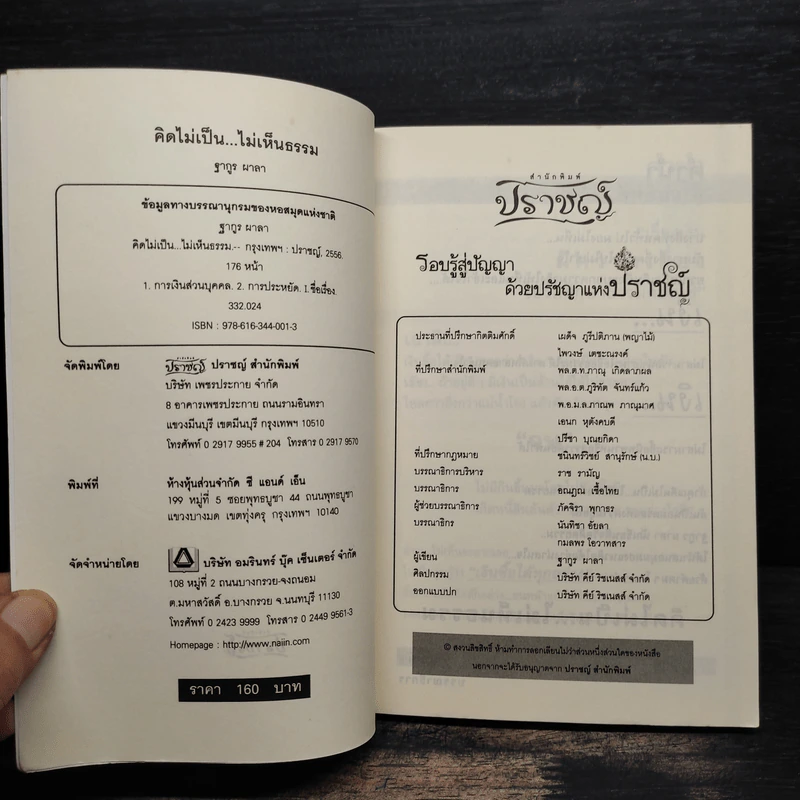 คิดไม่เป็น...ไม่เห็นธรรม
ฐากูร ผาลา
ข้อมูลทางบรรณานุกรมของหอสมุดแห่งชาติ
ฐากูร ผาลา
คิดไม่เป็น...ไม่เห็นธรรม.-- กรุงเทพฯ : ปราชญ์, 2556.
176 หน้า
1. การเงินส่วนบุคคล. 2. การประหยัด. I.ชื่อเรื่อง.
332.024
ISBN : 978-616-344-001-3
จัดพิมพ์โดย ปราชญ์ ปราชญ์ สำนักพิมพ์
บริษัท เพชรประกาย จำกัด
8 อาคารเพชรประกาย ถนนรามอินทรา
แขวงมีนบุรี เขตมีนบุรี กรุงเทพฯ 10510
โทรศัพท์ 0 2917 9955 # 204 โทรสาร 0 2917 9570
พิมพ์ที่ ห้างหุ้นส่วนจำกัด ซี แอนด์ เอ็น
199 หมู่ที่ 5 ซอยพุทธบูชา 44 ถนนพุทธบูชา
แขวงบางมด เขตทุ่งครุ กรุงเทพฯ 10140
จัดจำหน่ายโดย บริษัท อมรินทร์ บุ๊ค เซ็นเตอร์ จำกัด
108 หมู่ที่ 2 ถนนบางกรวย-จงถนอม
ต.มหาสวัสดิ์ อ.บางกรวย จ.นนทบุรี 11130
โทรศัพท์ 0 2423 9999 โทรสาร 0 2449 9561-3
Homepage : http://www.naiin.com
ราคา 160 บาท
สำนักพิมพ์
ปราชญ์
รอบรู้สู่ปัญญา
ด้วยปรัชญาแห่งปราชญ์
ประธานที่ปรึกษากิตติมศักดิ์ เผด็จ ภูรีปติภาน (พญาไม้)
ไพวงษ์ เตชะณรงค์
ที่ปรึกษาสำนักพิมพ์ พล.ต.ท.ภาณุ เกิดลาภผล
พล.อ.ต.ภูริทัต จันทร์แก้ว
พ.อ.ม.ล.ภาณพ ภาณุมาศ
เอนก หุตังคบดี
ปรีชา บุณยกิดา
ที่ปรึกษากฎหมาย ชนินทร์วิชย์ สานุรักษ์ (น.บ.)
บรรณาธิการบริหาร ราช รามัญ
บรรณาธิการ อณฏณ เชื้อไทย
ผู้ช่วยบรรณาธิการ ภัคจิรา พุกาธร
บรรณาธิกร นันทิชา อัยลา
กมลพร โอวาทสาร
ผู้เขียน ฐากูร ผาลา
ศิลปกรรม บริษัท คีย์ ริชเนสส์ จำกัด
ออกแบบปก บริษัท คีย์ ริชเนสส์ จำกัด
© สงวนลิขสิทธิ์ ห้ามทำการลอกเลียนไม่ว่าส่วนหนึ่งส่วนใดของหนังสือ
นอกจากจะได้รับอนุญาตจาก ปราชญ์ สำนักพิมพ์